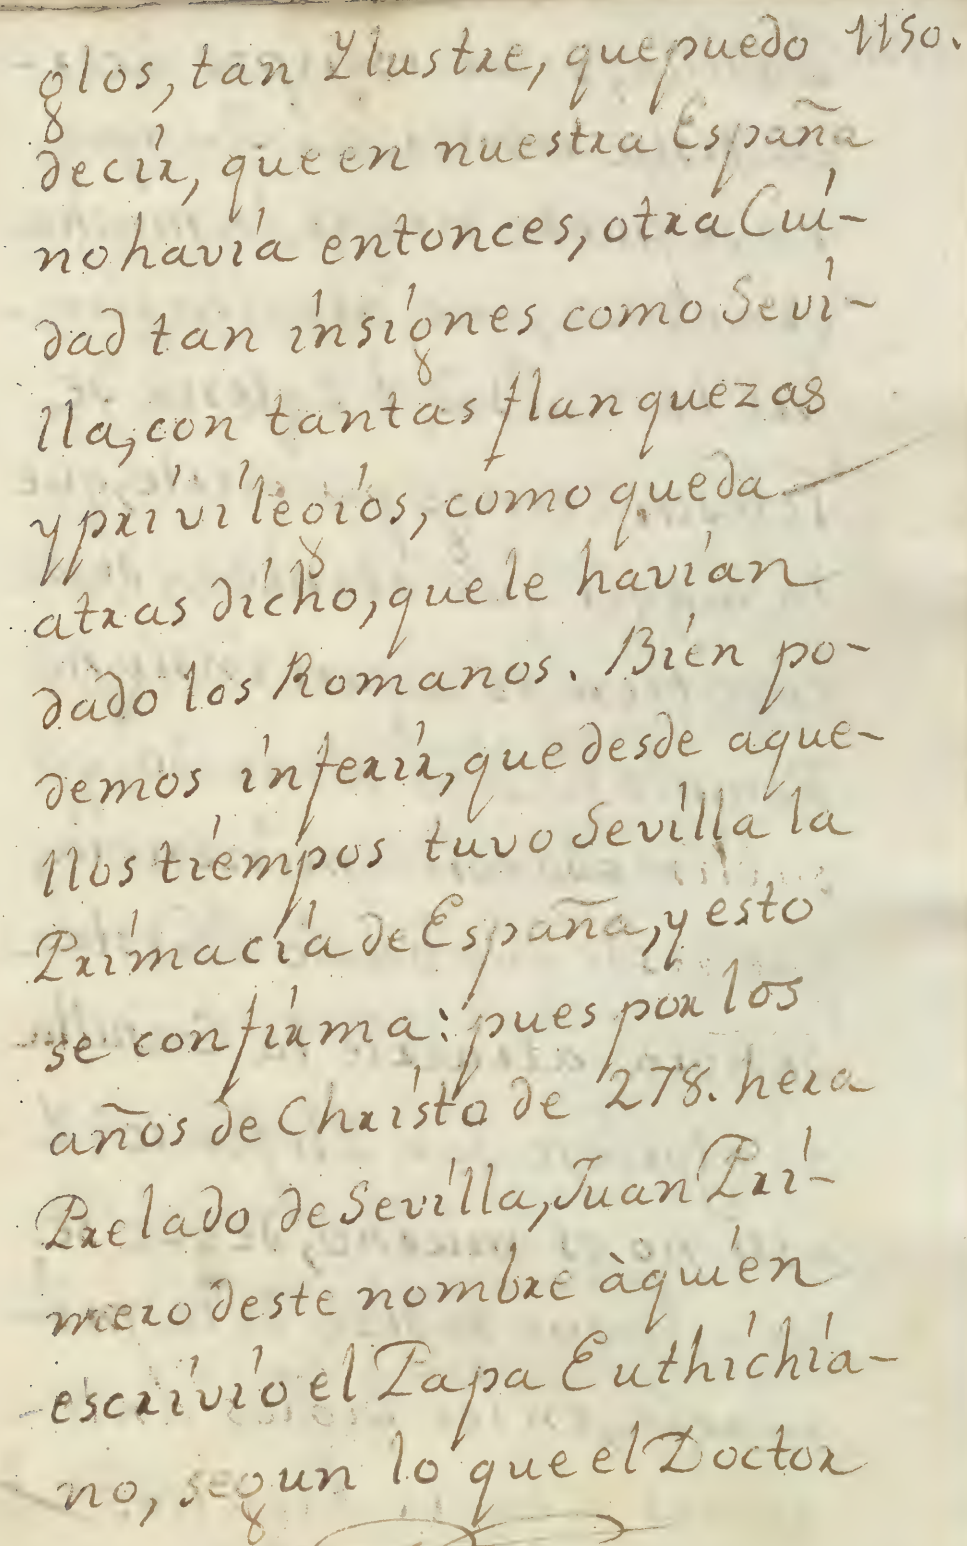 glos, tan Ylustre, que puedo 1150.
decir, que en nuestra España
no havía entonces, otra Cuí-
dad tan ínsígnes como Seví-
lla, con tantas flanquezas
y prívílegíos, como queda
atras dícho, que le havían
dado los Romanos. Bíen po-
demos ínferír, que desde aque-
llos tíempos tuvo Sevílla la
Prímacía de España, y esto
se confírma: pues por los
años de Chrísto de 278. hera
Prelado de Sevílla, Juan Prí-
mero deste nombre à quíen
escrívío el Papa Euthíchía-
no, segun lo que el Doctor